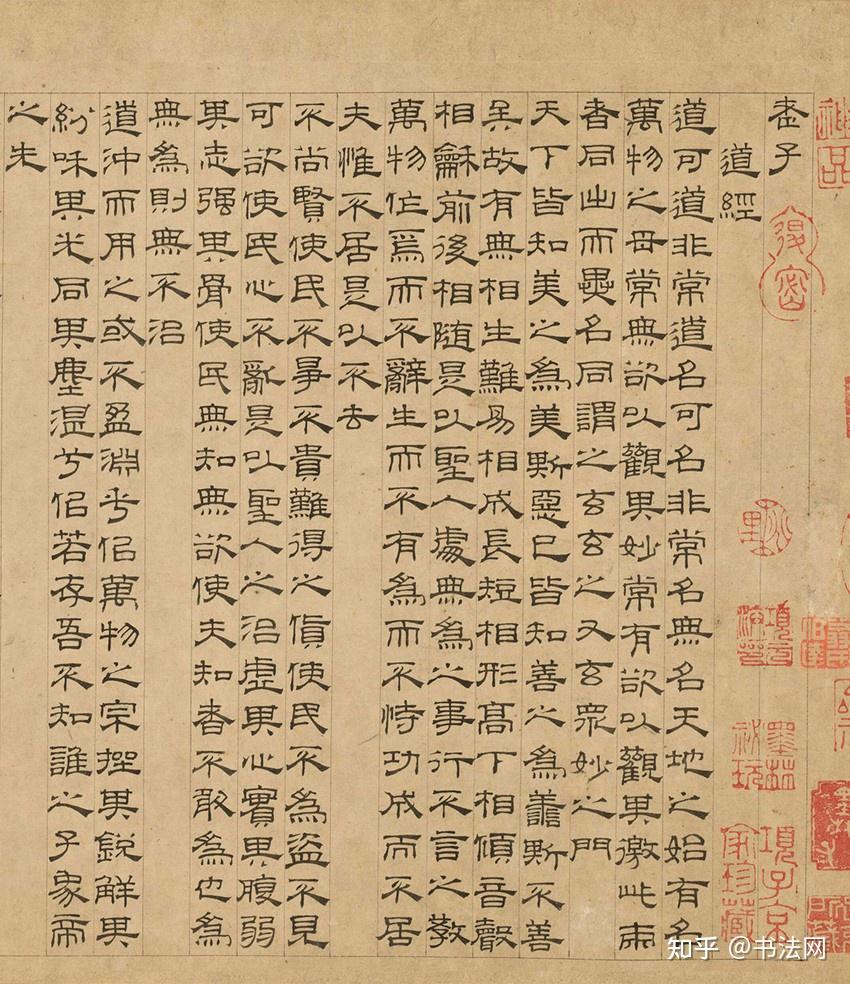 老子
道經
道可道非常道名可名非常名無名天地之始有名
萬物之母常無欲以觀其妙常有欲以觀其徼此兩
者同出而異名同謂之玄玄之又玄眾妙之門
天下皆知美之為美斯惡已皆知善之為善斯不善
矣故有無相生難易相成長短相形高下相傾音聲
相龢前後相随是以聖人處無為之事行不言之教
萬物作焉而不辭生而不有為而不恃功成而不居
夫惟不居是以不去
不尚賢使民不爭不貴難得之貨使民不為盜不見
可欲使民心不亂是以聖人之治虛其心實其腹弱
其志强其骨使民無知無欲使夫知者不敢為也為
無為則無不治
道沖而用之或不盈淵乎似萬物之宗挫其銳解其
紛咊其光同其塵湛兮似若存吾不知誰之子象帝
之先
項子京家珍藏
墨林祕玩
知乎 @书法网